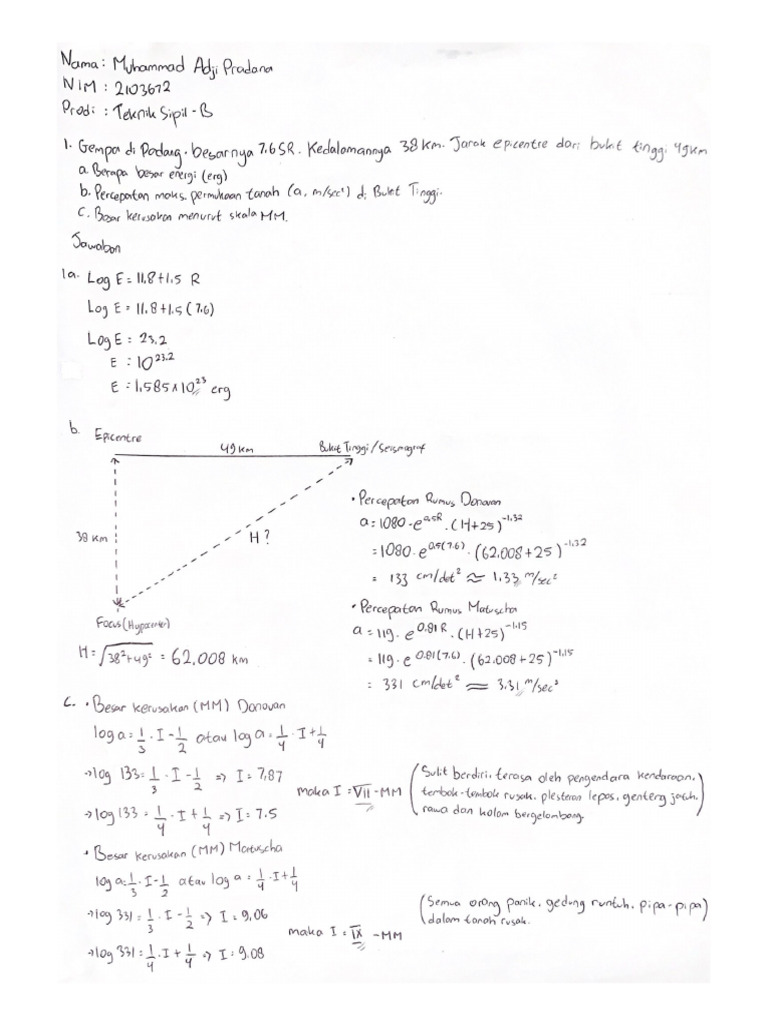 Nama : Muhammad Adji Pradana
NIM : 2103672
Prodi : Teknik Sipil - B
1. Gempa di Padang. besarnya 7.6 SR. Kedalamannya 38 km. Jarak epicentre dari bukit tinggi 49 km
a. Berapa besar energi (erg)
b. Percepatan maks. permukaan tanah (a, m/sec²) di Bukit Tinggi.
c. Besar kerusakan menurut skala MM.
Jawaban
1a. Log E = 11.8 + 1.5 R
Log E = 11.8 + 1.5 (7.6)
Log E : 23.2
E : 10^23.2
E : 1,585 x 10^23 erg
b. Epicentre
49 km
Bukit Tinggi / Seismograf
38 km
H ?
Focus (Hypocenter)
H = √38² + 49² = 62,008 km
• Percepatan Rumus Donovan
a = 1080 . e^0.5R . (H + 25)^-1.32
= 1080 . e^0.5(7.6) . (62,008 + 25)^-1.32
= 133 cm/det² ≈ 1,33 m/sec²
• Percepatan Rumus Matuscha
a = 119 . e^0.81 R . (H + 25)^-1.15
= 119 . e^0.81(7.6) . (62.008 + 25)^-1.15
= 331 cm/det² ≈ 3.31 m/sec²
c. • Besar kerusakan (MM) Donovan
log a = 1/3 . I - 1/2 atau log a = 1/4 . I + 1/4
→ log 133 = 1/3 . I - 1/2 => I = 7,87
→ log 133 = 1/4 . I + 1/4 => I = 7.5
maka I = VII - MM
(Sulit berdiri, terasa oleh pengendara kendaraan,
tembok-tembok rusak, plesteran lepas, genteng jatuh,
rawa dan kolam bergelombang.)
• Besar kerusakan (MM) Matuscha
log a = 1/3 . I - 1/2 atau log a = 1/4 . I + 1/4
→ log 331 = 1/3 . I - 1/2 => I = 9,06
→ log 331 = 1/4 . I + 1/4 => I = 9.08
maka I = IX - MM
(Semua orang panik, gedung runtuh, pipa-pipa
dalam tanah rusak.)